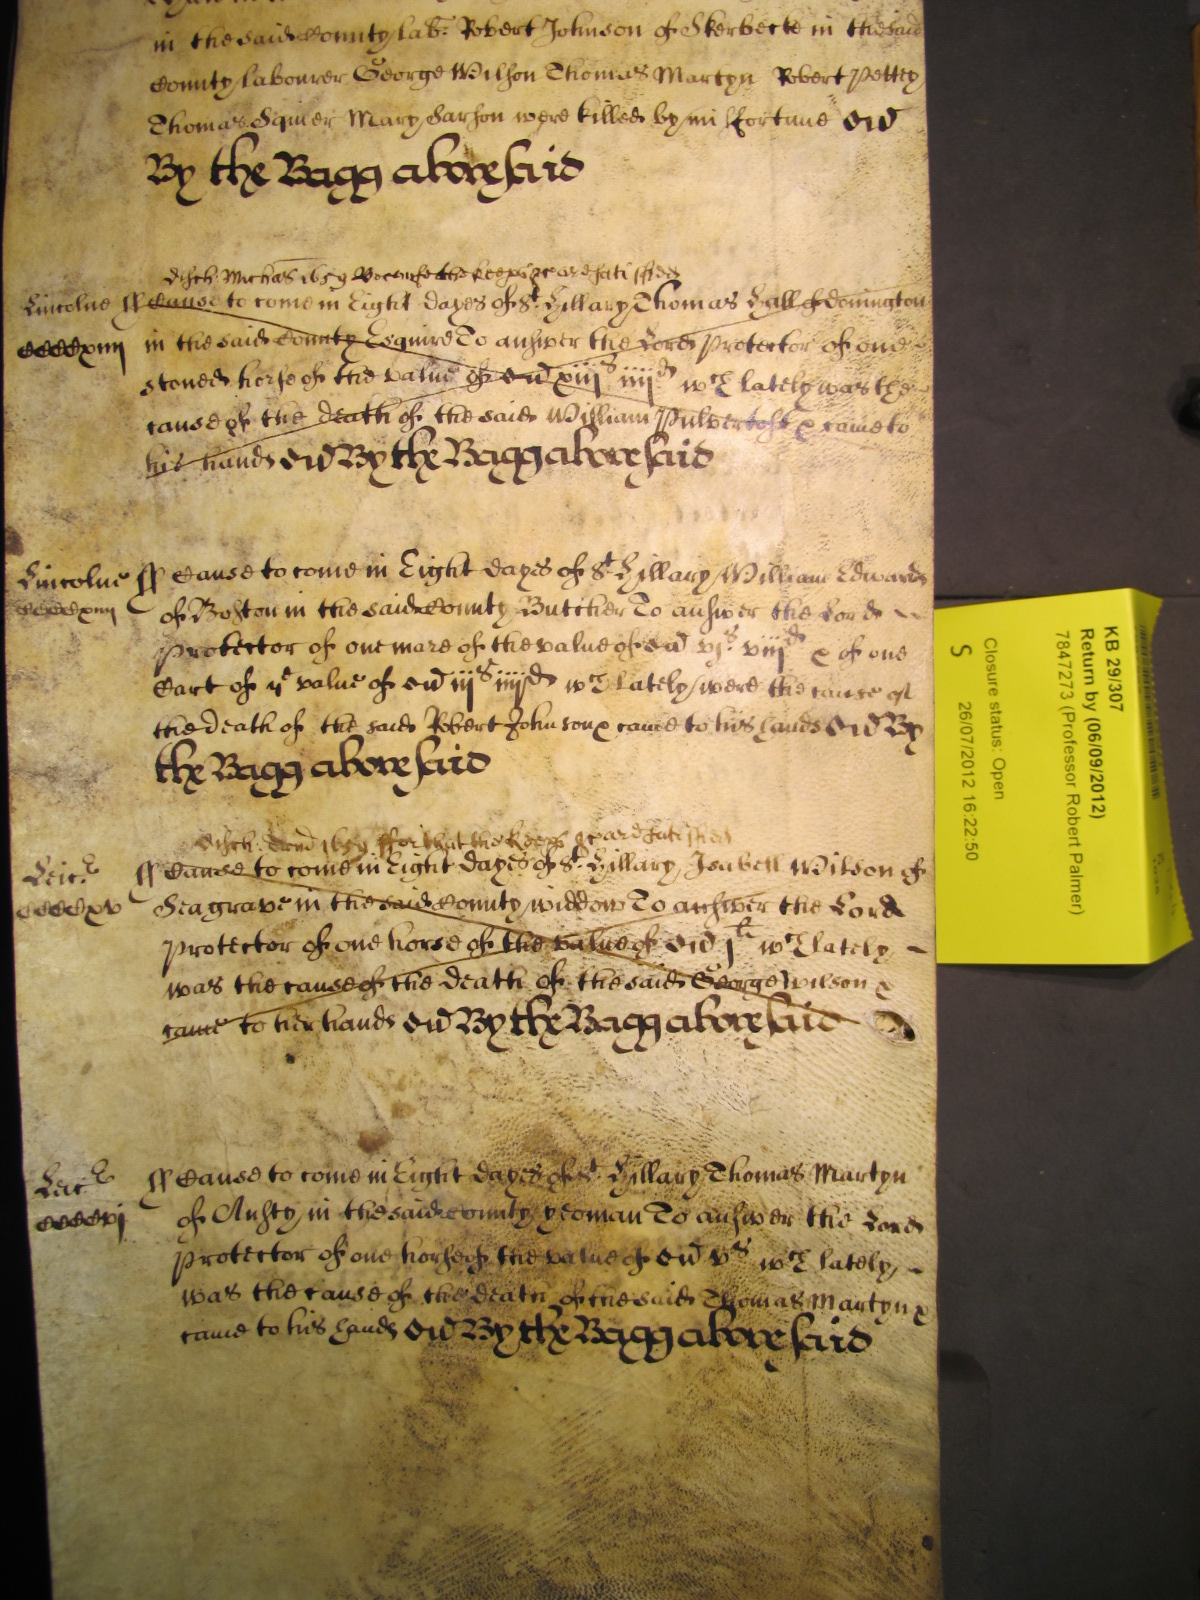 in the said County lab: Robert Johnson of Skerbecke in the said
County labourer George Wilson Thomas Martyn Robert Pettey
Thomas Squier Mary Sarson were killed by misfortune
By the Bagg aboresaid
Disch Michãs 1659 the keepers are satisfied
Lincolne ss Cause to come in Eight dayes of St Hillary Thomas Hall of Donington
CCCCxiiij in the said County Esquire To answer the Lord Protector of one
stoned horse of the value of xiijs iiijd wch lately was the
cause of the death of the said William Pulvertoft & came to
his hands By the Bagg aboresaid
Lincolne ss Cause to come in Eight dayes of St Hillary William Edwards
of Boston in the said County Butcher To answer the Lord
Protector of one mare of the value of vjs viijd & of one
Cart of ye value of iijs iiijd wch lately were the cause of
the death of the said Robert Johnson & came to his hands By
the Bagg aboresaid
Disch: 1659 ffor that the keeps are satisfied
Leic. ss Cause to come in Eight dayes of St Hillary Isabell Wilson of
CCCCxv Seagrave in the said County widdow To answer the Lord
Protector of one horse of the value of wch lately
was the cause of the death of the said George Wilson &
came to her hands By the Bagg aboresaid
Leic ss Cause to come in Eight dayes of St Hillary Thomas Martyn
CCCCxvj of Ansty in the said County yeoman To answer the Lord
Protector of one horse of the value of vs wch lately
was the cause of the death of the said Thomas Martyn &
came to his hands By the Bagg aboresaid
KB 29/307
Return by (06/09/2012)
7847273 (Professor Robert Palmer)
Closure status: Open
S 26/07/2012 16:22:50